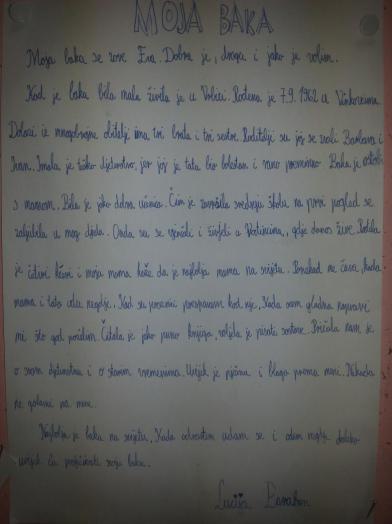 MOJA BAKA
Moja baka se zove Eva. Dobra je, draga i jako je volim.
Kad je baka bila mala živila je u Rođena je 7.9.1962 u Vinkovcima
Dolazi iz mnogobrojne obitelji ima tri brata i tri sestre. Roditelji su joj se zvali Barbara i
Ivan. Imala je teško djetinstvo, jer joj je tata bio bolestan i rano preminuo. Baka je ostala
s mamom. Bila je jako dobra učenica. Čim je završila srednju školu na prvi pogled se
zaljubila u mog djeda. Onda su se vjenčali i živjeli u gdje danas žive. Rodila
je četiri kćeri i moja mama kaže da je najbolja mama na svijetu. Ponekad me čuva, kada
mama i tata odu negdje. Kad su praznici prespavam kod nje. Kada sam gladna napravi
mi što god poželim. Čitala je jako puno knjiga, voljela je pisati sastave. Pričala nam je
o svom djetinstvu i o starim vremenima. Uvijek je nježna i blaga prema meni. Nikada
ne galami na mene.
Najbolja je baka na svijetu. Kada odrastem udam se i odem negdje daleko
uvijek ću posjećivati svoju baku.
Lucija